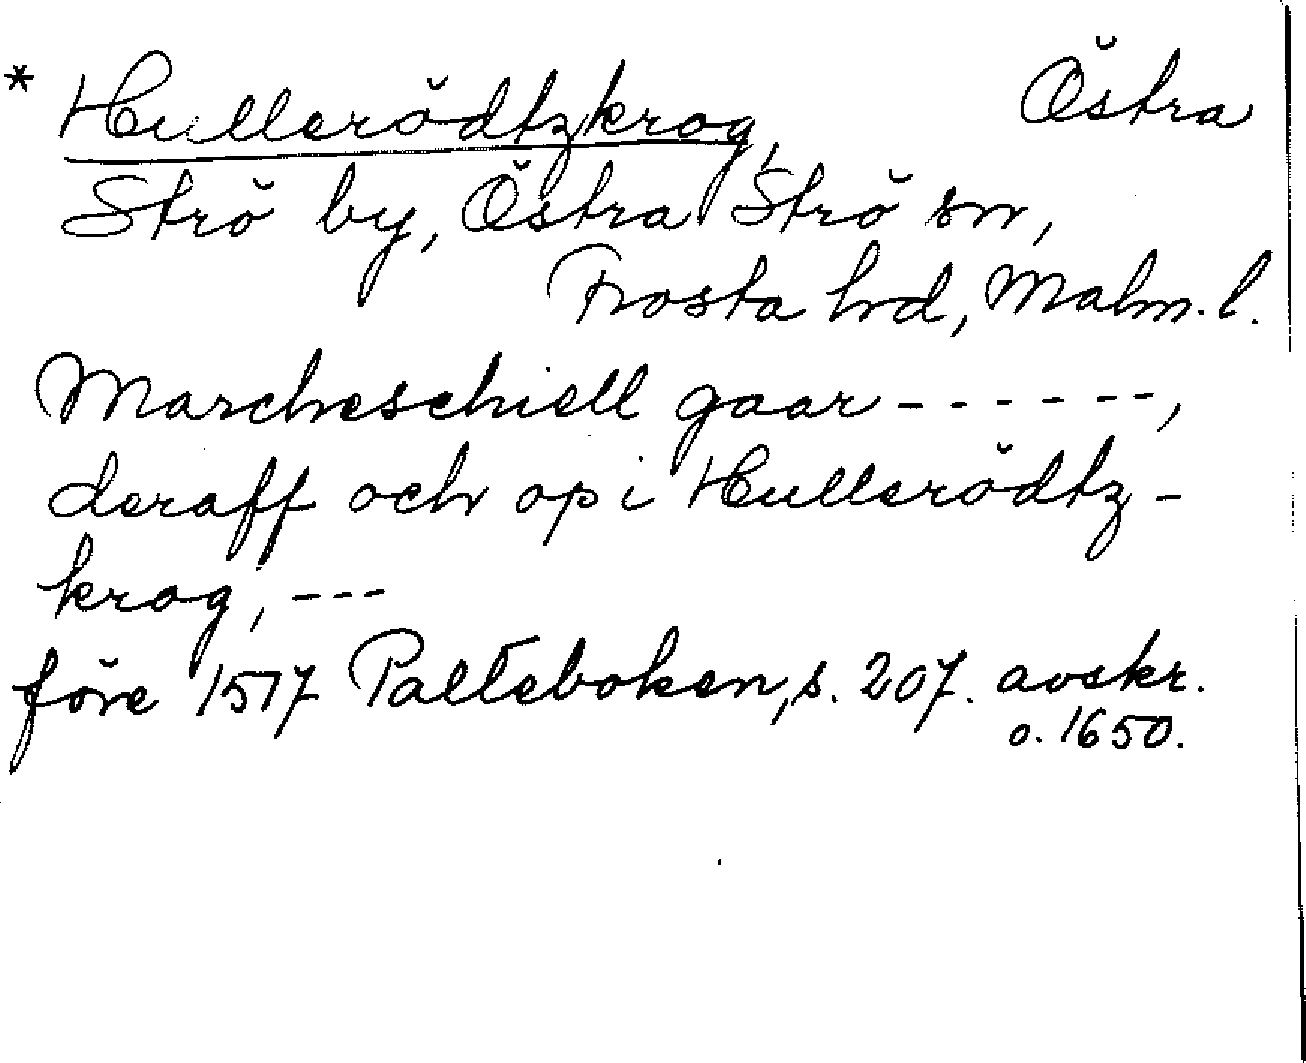 * Hullerödtzkrog, Östra
Strö by, Östra Strö sn,
Frosta hd, Malm. l.
Marcheschiell gaar ------,
deraff och op i Hullerödtz-
krog, ---
före 1517 Palteboken, s. 207. avskr.
o. 1650.